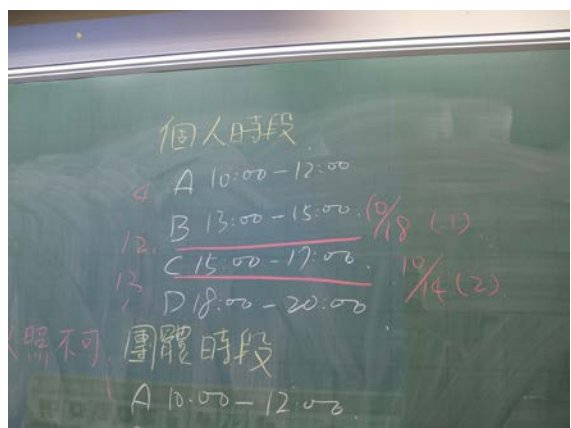 個人時段
4 A 10:00-12:00
12. B 13:00-15:00. 10/18 (1)
13 C 15:00-17:00. 10/14 (2)
D 18:00-20:00
照不可
團體時段
A 10:00-12:00